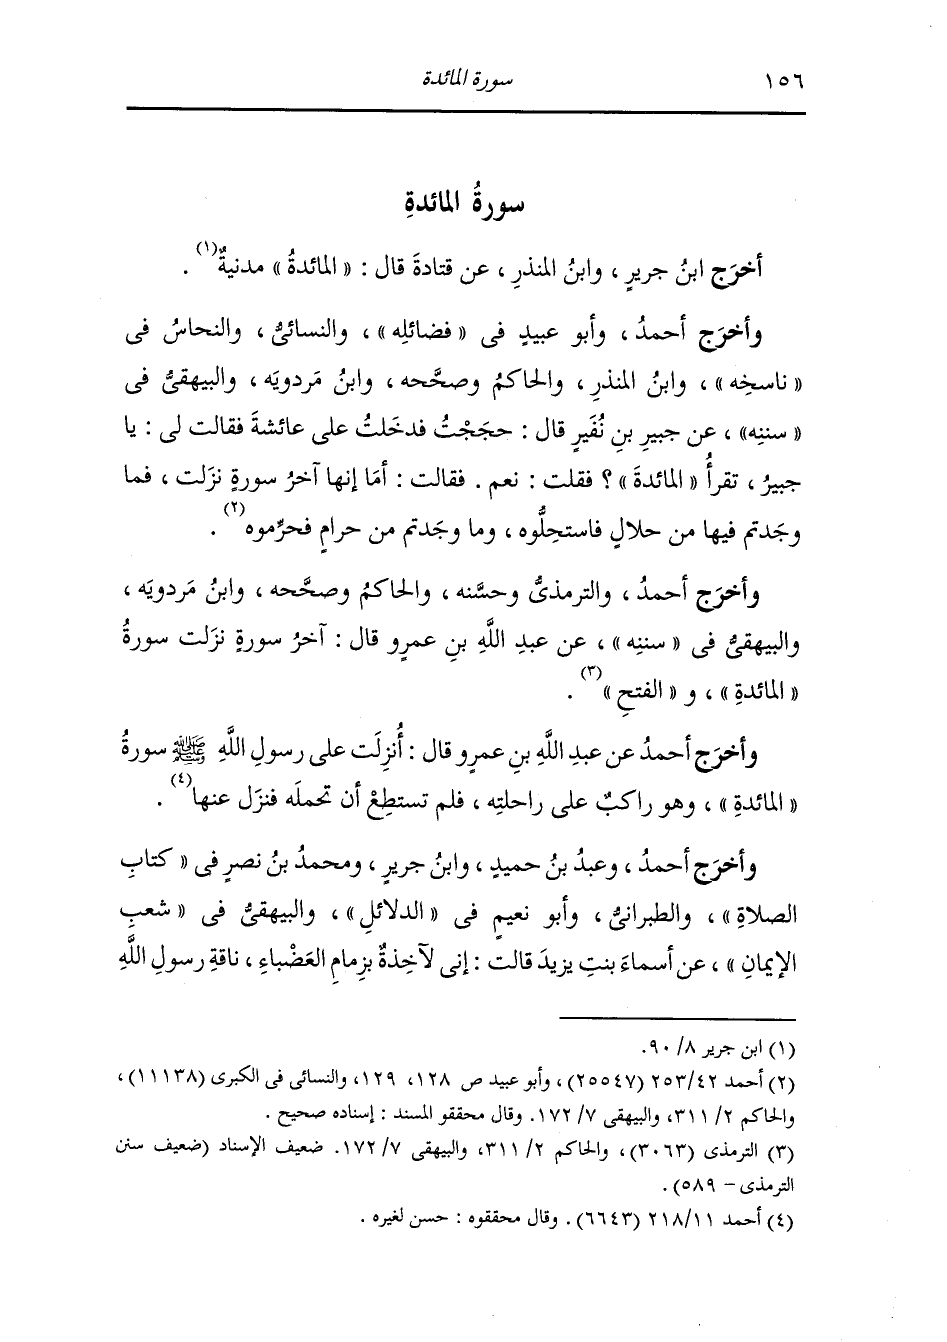 ١٥٦ سورة المائدة
سورةُ المائدةِ
أخرَج ابنُ جريرٍ ، وابنُ المنذرِ ، عن قتادةَ قال : « المائدةُ » مدنيةٌ(١) .
وأخرَج أحمدُ ، وأبو عبيدٍ فى « فضائلِه » ، والنسائىُّ ، والنحاسُ فى
« ناسخِه » ، وابنُ المنذرِ ، والحاكمُ وصحَّحه ، وابنُ مَردويَه ، والبيهقىُّ فى
« سننِه» ، عن جبيرِ بنِ نُفَيرٍ قال : حجَجْتُ فدخَلتُ على عائشةَ فقالت لى : يا
جبيرُ ، تقرأُ « المائدةَ » ؟ فقلت : نعم . فقالت : أمَا إنها آخرُ سورةٍ نزَلت ، فما
وجَدتم فيها من حلالٍ فاستحِلُّوه ، وما وجَدتم من حرامٍ فحرِّموه(٢) .
وأخرَج أحمدُ ، والترمذىُّ وحسَّنه ، والحاكمُ وصحَّحه ، وابنُ مَردويَه ،
والبيهقىُّ فى « سننِه » ، عن عبدِ اللَّهِ بنِ عمرٍو قال : آخرُ سورةٍ نزَلت سورةُ
« المائدةِ » ، و « الفتحِ »(٣) .
وأخرَج أحمدُ عن عبدِ اللَّهِ بنِ عمرٍو قال : أُنزِلَت على رسولِ اللَّهِ ﷺ سورةُ
« المائدةِ » ، وهو راكبٌ على راحلتِه ، فلم تستطِعْ أن تحملَه فنزَل عنها(٤) .
وأخرَج أحمدُ ، وعبدُ بنُ حميدٍ ، وابنُ جريرٍ ، ومحمدُ بنُ نصرٍ فى « كتابِ
الصلاةِ » ، والطبرانىُّ ، وأبو نعيمٍ فى « الدلائلِ » ، والبيهقىُّ فى « شعبِ
الإيمانِ » ، عن أسماءَ بنتِ يزيدَ قالت : إنى لآخِذةٌ بزِمامِ العَضْباءِ ، ناقةِ رسولِ اللَّهِ
(١) ابن جرير ٨/ ٩٠.
(٢) أحمد ٢٥٣/٤٢ (٢٥٥٤٧) ، وأبو عبيد ص ١٢٨، ١٢٩، والنسائى فى الكبرى (١١١٣٨) ،
والحاكم ٢/ ٣١١، والبيهقى ٧/ ١٧٢. وقال محققو المسند : إسناده صحيح .
(٣) الترمذى (٣٠٦٣) ، والحاكم ٢/ ٣١١، والبيهقى ٧/ ١٧٢. ضعيف الإسناد (ضعيف سنن
الترمذى – ٥٨٩) .
(٤) أحمد ٢١٨/١١ (٦٦٤٣) . وقال محققوه : حسن لغيره .